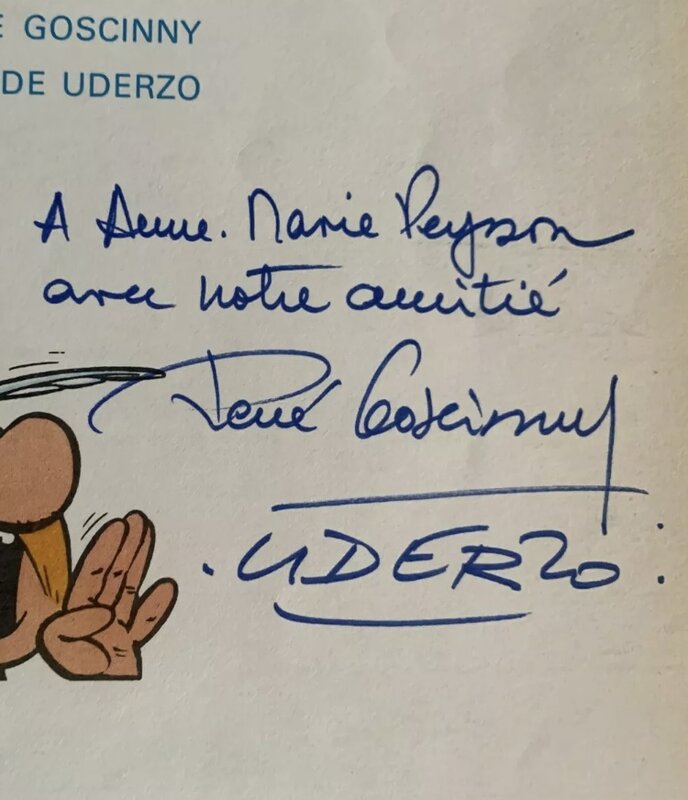 E GOSCINNY
DE UDERZO
A Anne. Marie Peysson
avec notre amitié
René Goscinny
. UDERZO :